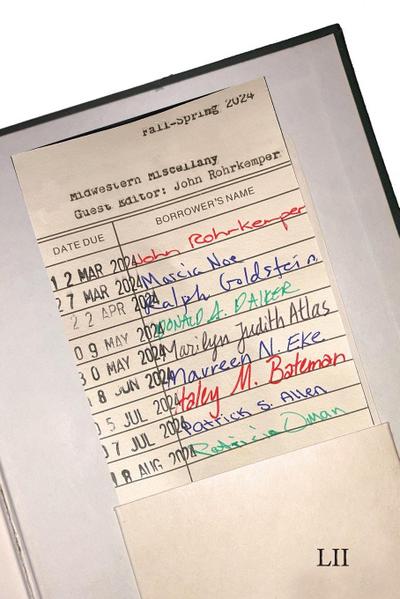 Fall-Spring 2024
Midwestern Miscellany
Guest Editor: John Rohrkemper
DATE DUE BORROWER'S NAME
1 2 MAR 2024 John Rohrkemper
2 7 MAR 2024 Marcia Noe
2 2 APR 2024 Ralph Goldstein
0 9 MAY 2024 DONALD A. DAIKER
0 MAY 2024 Marilyn Judith Atlas
8 JUN 2024 Maureen N. Eke
0 5 JUL 2024 M. Bateman
7 JUL 2024 Patrick S. Allen
1 8 AUG 2024 Patricia Oman
LII